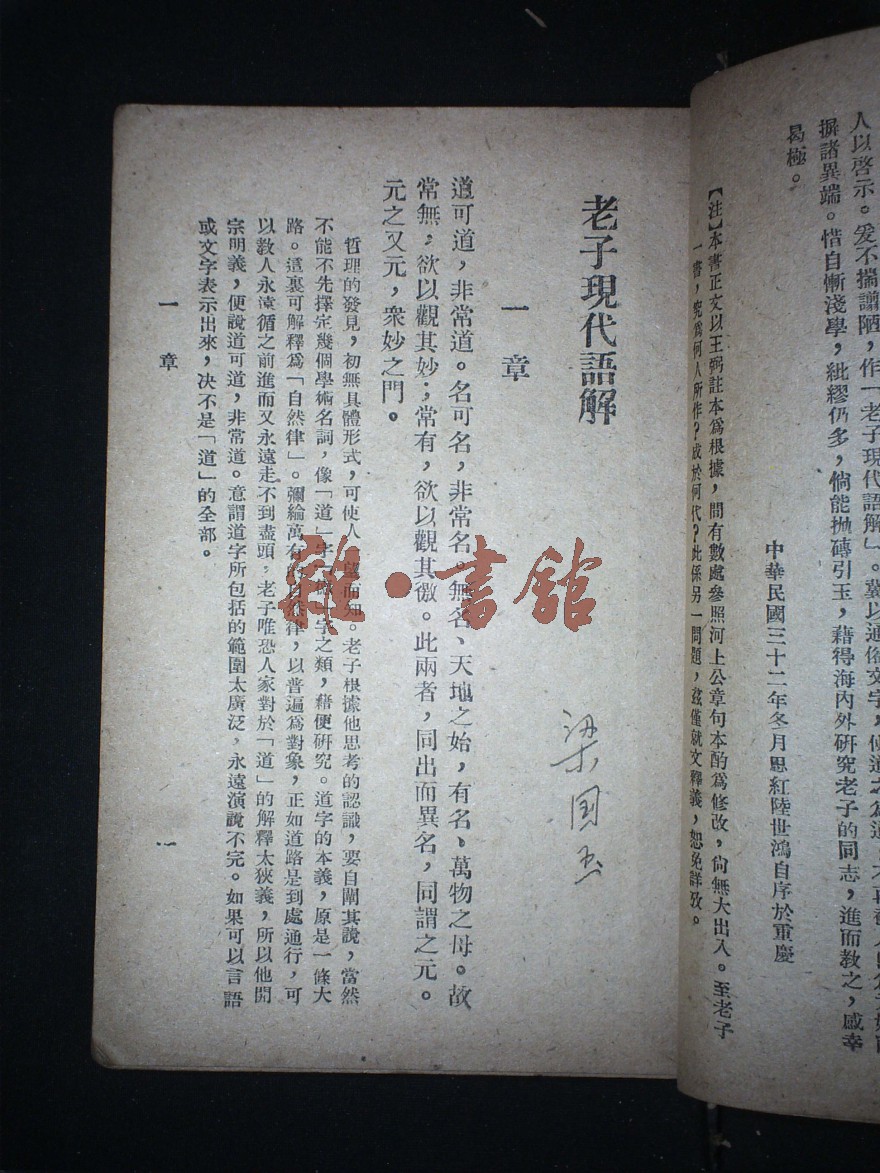 人以啓示。爰不揣譾陋,作「老子現代語解」。冀以通俗文字,使道之爲道,不再
摒諸異端。惜自慚淺學,紕繆仍多,倘能抛磚引玉,藉得海內外研究老子的同志,進而教之,感幸
曷極。
中華民國三十二年冬月恩紅陸世鴻自序於重慶
【注】本書正文以王弼註本爲根據,間有數處參照河上公章句本酌爲修改,尙無大出入。至老子
一書,究爲何人所作?成於何代?此係另一問題,茲僅就文釋義,恕免詳攷。
老子現代語解
一章
道可道,非常道。名可名,非常名。無名、天地之始,有名、萬物之母。故
常無,欲以觀其妙;常有,欲以觀其徼。此兩者,同出而異名,同謂之元。
元之又元,衆妙之門。
哲理的發見,初無具體形式,可使人一望而知。老子根據他思考的認識,要自闡其說,當然
不能不先擇定幾個學術名詞,像「道」字「德」字之類,藉便研究。道字的本義,原是一條大
路。這裏可解釋爲「自然律」。彌綸萬有的自然律,以普遍爲對象,正如道路是到處通行,可
以教人永遠循之前進而又永遠走不到盡頭,老子唯恐人家對於「道」的解釋太狹義,所以他開
宗明義,便說道可道,非常道。意謂道字所包括的範圍太廣泛,永遠演說不完。如果可以言語
或文字表示出來,決不是「道」的全部。
一章
一
梁國玉
雜·書館